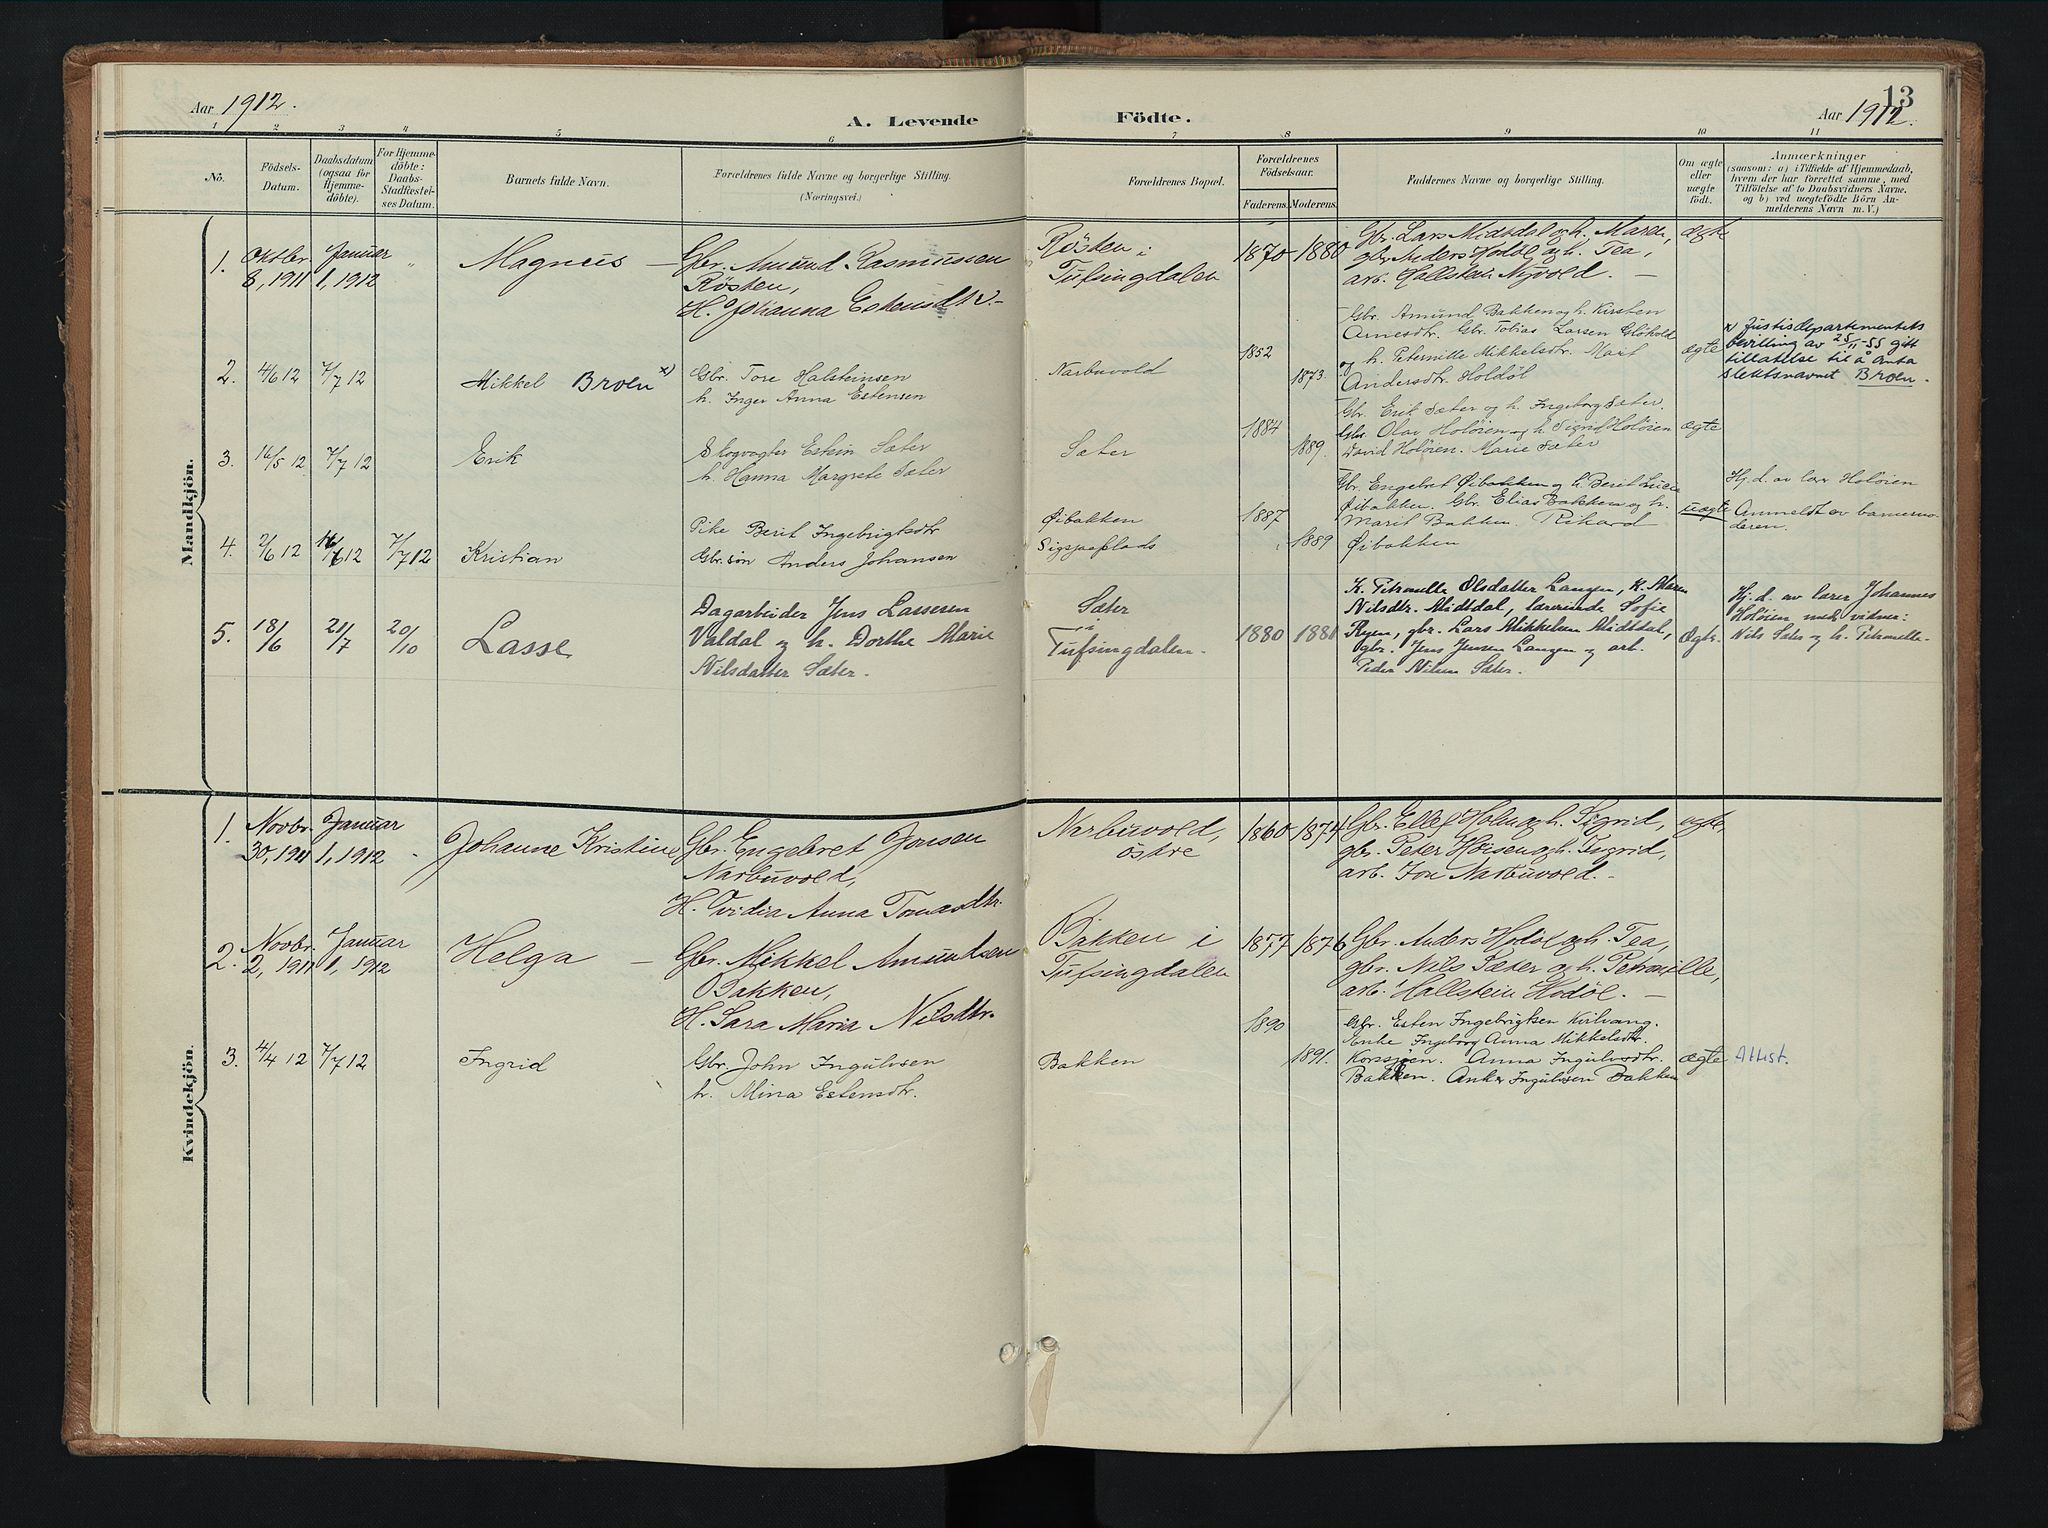 Aar 1912.
A. Levende Födte.
13
Aar 1912.
1 2 3 4 5 6 7 8 9 10 11
No.
Födsels-Datum.
Daabsdatum (ogsaa for Hjemme-døbte).
For Hjemme-døbte: Daabs-Stadfæstel-ses Datum.
Barnets fulde Navn.
Forældrenes fulde Navne og borgerlige Stilling.
(Næringsvei.)
Forældrenes Bopæl.
Forældrenes Födselsaar.
Faderens. Moderens.
Faddernes Navne og borgerlige Stilling.
Om ægte eller uægte födt.
Anmærkninger
(saasom: a) i Tilfælde af Hjemmedaab,
hvem der har forrettet samme, med
Tilföielse af to Daabsvidners Navne.
og b) ved uægtefödte Börn An-
melderens Navn m. V.)
Mandkjön.
1. Oktbr. 8, 1911 Januar 1, 1912 " Magnus –
Gbr. Amund Rasmussen
Rösten,
H. Johanna Estensdtr.–
Rösten i
Tufsingdalen
1870 – 1880
Gbr. Lars Midtdal og h. Maren,
gbr. Anders Hodöl og h. Tea,
arb. Hallstein Nyvold. –
ægte
2. 4/6 12 7/7 12 Mikkel Broen x)
Gbr. Tore Halsteinsen
h. Inger Anna Estensen
Narbuvold
1852 1873.
Gbr. Amund Bakken og h. Kirsten
Arnesdtr. Gbr. Tobias Larsen Glöhold
og h. Peternille Mikkelsdtr. Marit
Andersdtr. Holdöl
ægte
x) Justisdepartementets
bevilling av 25/11-55 gitt
tillatelse til å anta
slektsnavnet Broen.
3. 16/5 12 7/7 12 Erik
Skogvagter Estein Sæter
h. Hanna Margrete Sæter
Sæter
1884 1889.
Gbr. Erik Sæter og h. Ingeborg Sæter.
Gbr. Olav Holöien og h. Sigrid Holöien
David Holöien. Marie Sæter
ægte
4. 2/6 12 16/6 12 7/7 12 Kristian
Pike Berit Ingebrigtsdtr
Gbr.sön Anders Johansen
Öibakken
1887 1889
Gbr. Engebret Öibakken og h. Berit Lucie
Öibakken. Gbr. Elias Bakken og h.
Marit Bakken. Rikard
Öibakken
uægte
Hj. d. av lærer Holöien
Anmeldt av barnemo-
deren.
5. 18/6 21/7 20/10 Lasse
Dagarbeider Jens Larsesen
Valdal og h. Dorthe Marie
Nilsdatter Sæter.
Sæter
i
Tufsingdalen.
1880 1881
K. Petronelle Olsdatter Langen, K. Maren
Nilsdtr. Midtdal, lærerinde Sofie
Ryen, gbr. Lars Mikkelsen Midtdal,
gbr. Jens Jensen Langen og arb.
Peder Nilsen Sæter.
Ægte.
Hj. d. av lærer Johannes
Holöien med vidner:
Nils Sæter og h. Petronelle.
Kvindekjön.
1. Novbr. 30, 1911 Januar 1, 1912 Johanne Kristine
Gbr. Engebret Jonsen
Narbuvold,
H. Ovidia Anna Tomasdtr.
Narbuvold,
östre
1860 1874
Gbr. Ellef Holm og h. Sigrid,
gbr. Peter Höisen og h. Ingrid,
arb. Jon Narbuvold. –
ægte,
2. Novbr. 2, 1911 Januar 1, 1912 Helga –
Gbr. Mikkel Amundsen
Bakken,
H. Sara Maria Nilsdtr.
Bakken i
Tufsingdalen
1877 1876
Gbr. Anders Hodöl og h. Tea,
gbr. Nils Sæter og h. Petronille,
arb. Hallstein Hodöl. –
3. 4/4 12 7/7 12 Ingrid
Gbr. John Ingulvsen
h. Mina Estensdtr.
Bakken
1890 1891.
Gbr. Esten Ingebrigtsen Kvilvang.
Enke Ingeborg Anna Mikkelsdtr
Korssjöen. Anna Ingulvsdtr.
Bakken. Anders Ingulvsen Bakken
ægte
Attest.